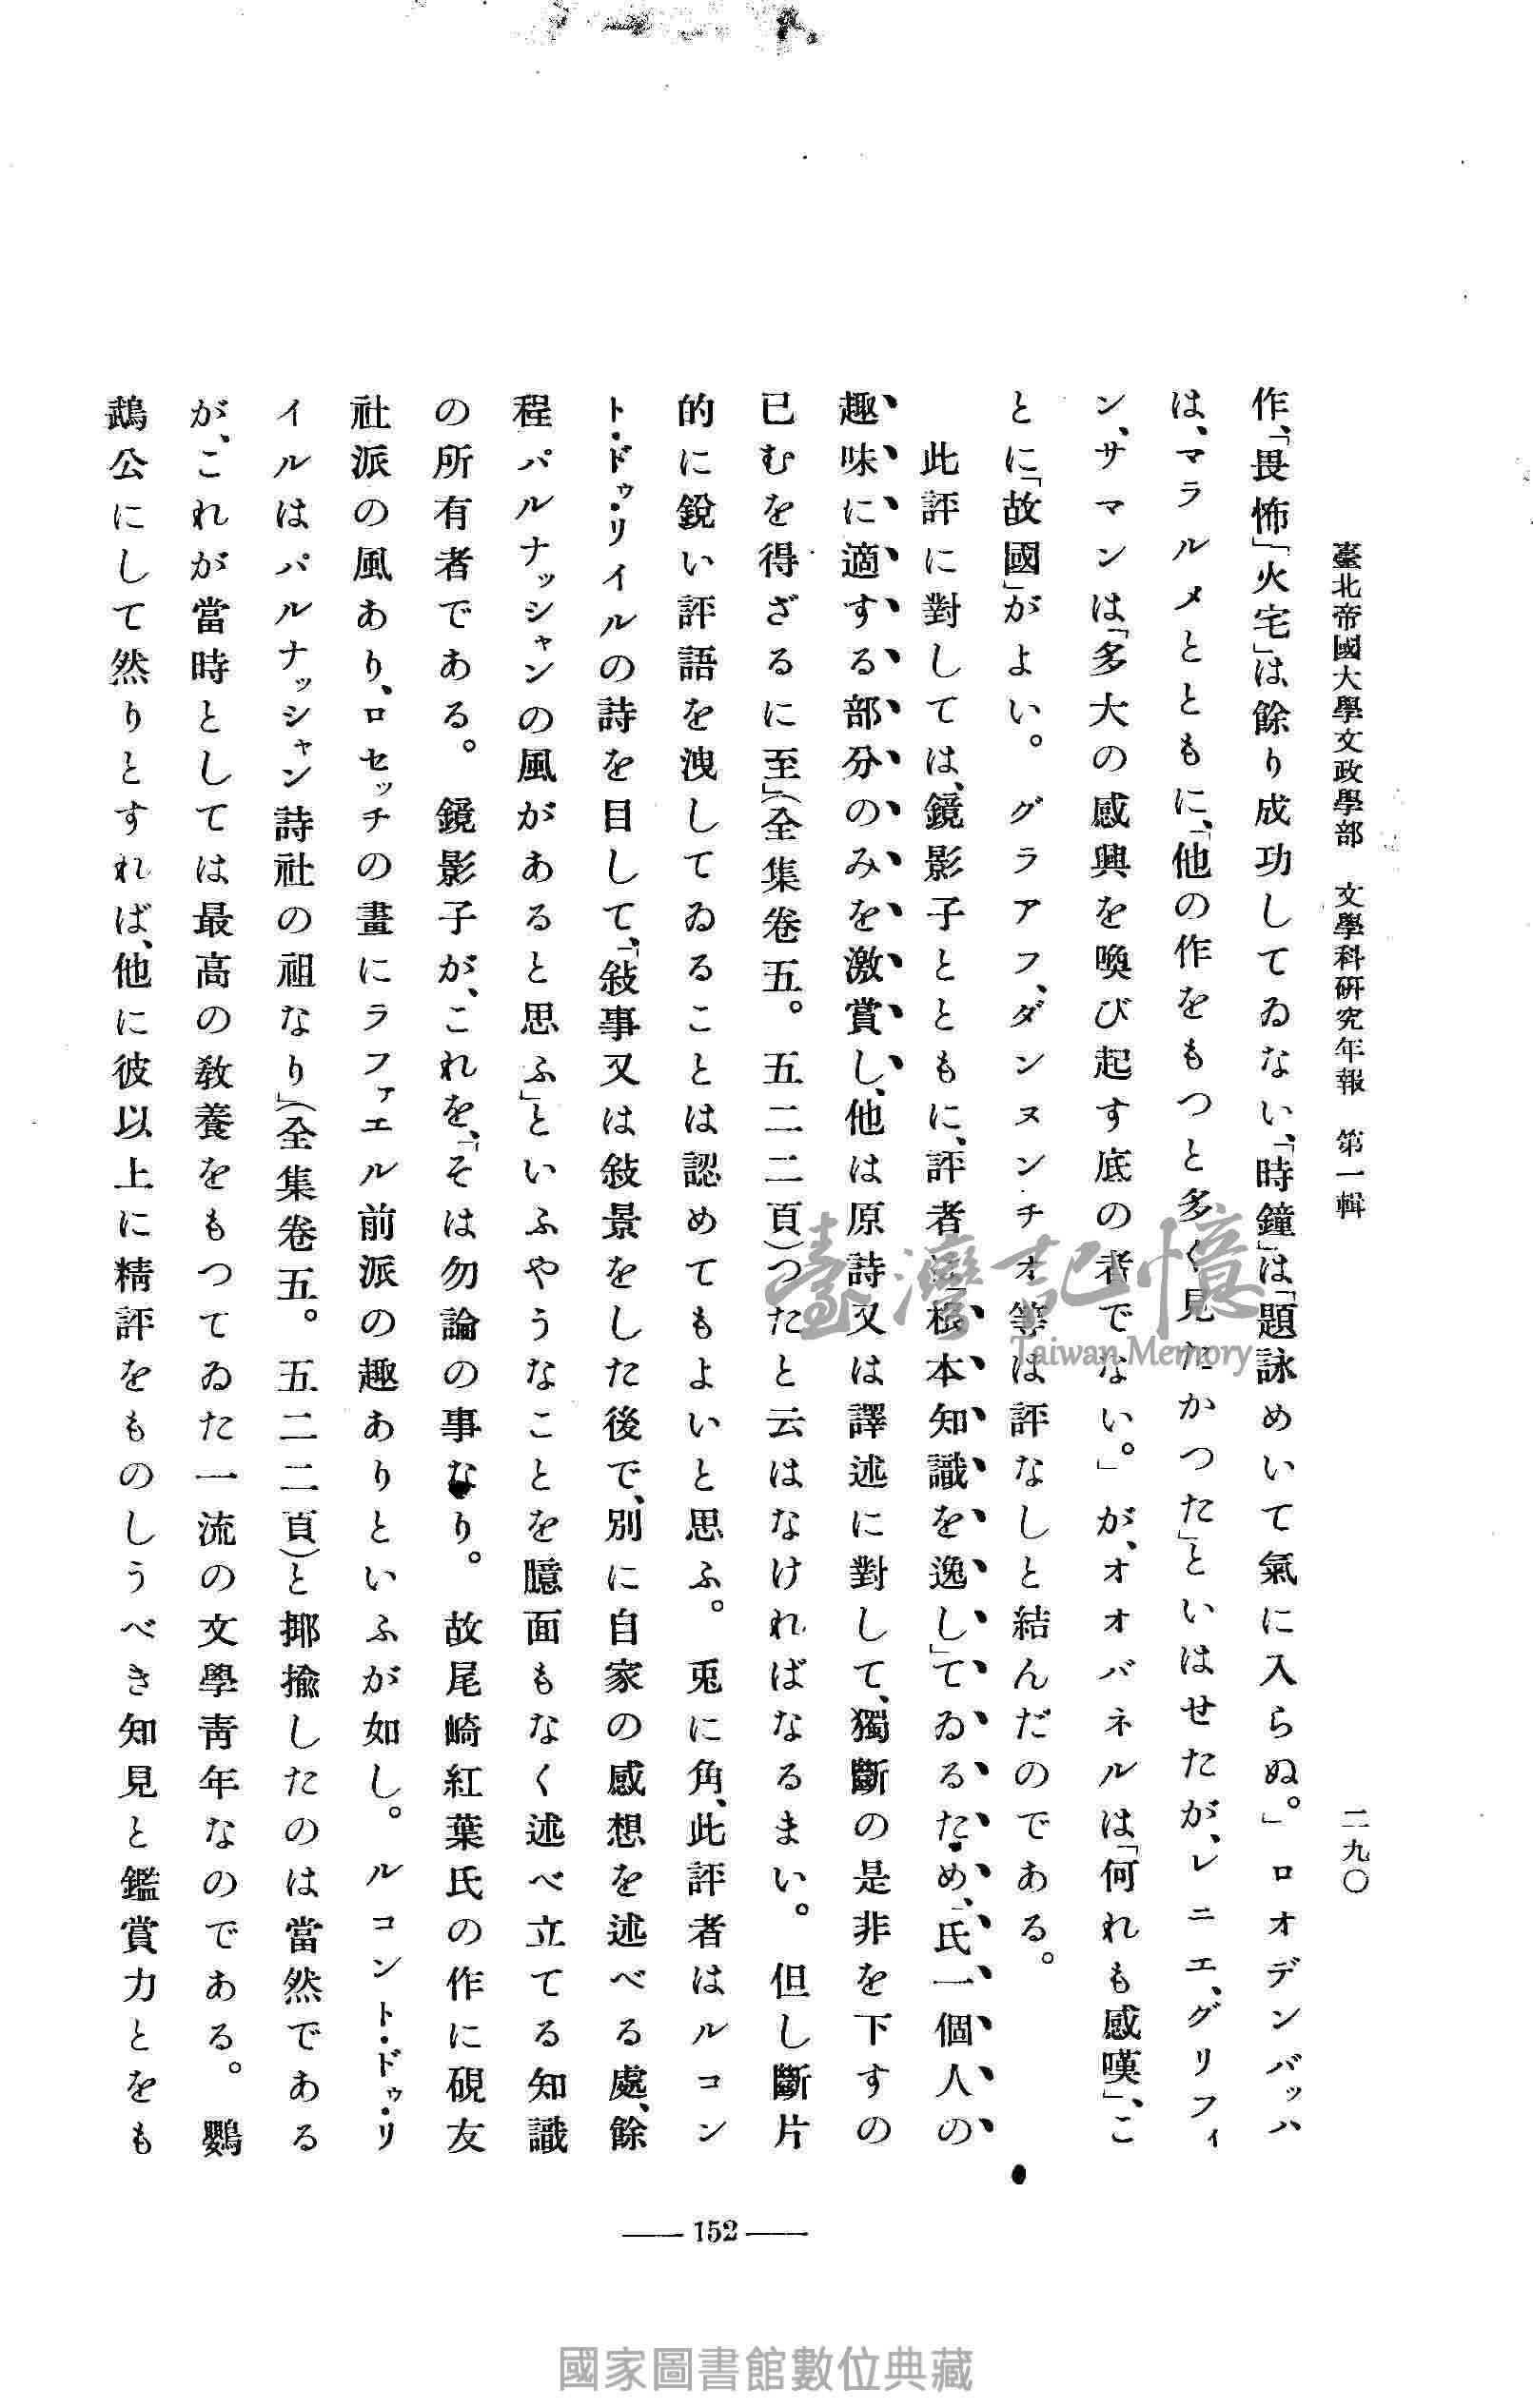 臺北帝國大學文政學部　文學科硏究年報　第一輯
二九〇
作、「畏怖」「火宅」は餘り成功してゐない、「時鐘」は「題詠めいて氣に入らぬ。」ロオデンバッハ
は、マラルメとともに、「他の作をもつと多く見たかつた」といはせたが、レニエ、グリフィ
ン、サマンは「多大の感興を喚び起す底の者でない。」が、オオバネルは「何れも感嘆」、こ
とに「故國」がよい。グラアフ、ダンヌンチオ等は評なしと結んだのである。
此評に對しては、鏡影子とともに、評者は「根本知識を逸し」てゐるため、「氏一個人の
趣味に適する部分のみを激賞し、他は原詩又は譯述に對して、獨斷の是非を下すの
已むを得ざるに至」(全集卷五。五二二頁)つたと云はなければなるまい。但し斷片
的に銳い評語を洩してゐることは認めてもよいと思ふ。兎に角、此評者はルコン
ト・ドゥ・リイルの詩を目して、「敍事又は敍景をした後で、別に自家の感想を述べる處、餘
程パルナッシャンの風があると思ふ」といふやうなことを臆面もなく述べ立てる知識
の所有者である。鏡影子が、これを、「そは勿論の事なり。故尾崎紅葉氏の作に硯友
社派の風あり、ロセッチの畫にラファエル前派の趣ありといふが如し。ルコント・ドゥ・リ
イルはパルナッシャン詩社の祖なり」(全集卷五。五二二頁)と揶揄したのは當然である
が、これが當時としては最高の敎養をもつてゐた一流の文學靑年なのである。鸚
鵡公にして然りとすれば、他に彼以上に精評をものしうべき知見と鑑賞力とをも
152
臺灣記憶
Taiwan Memory
國家圖書館數位典藏